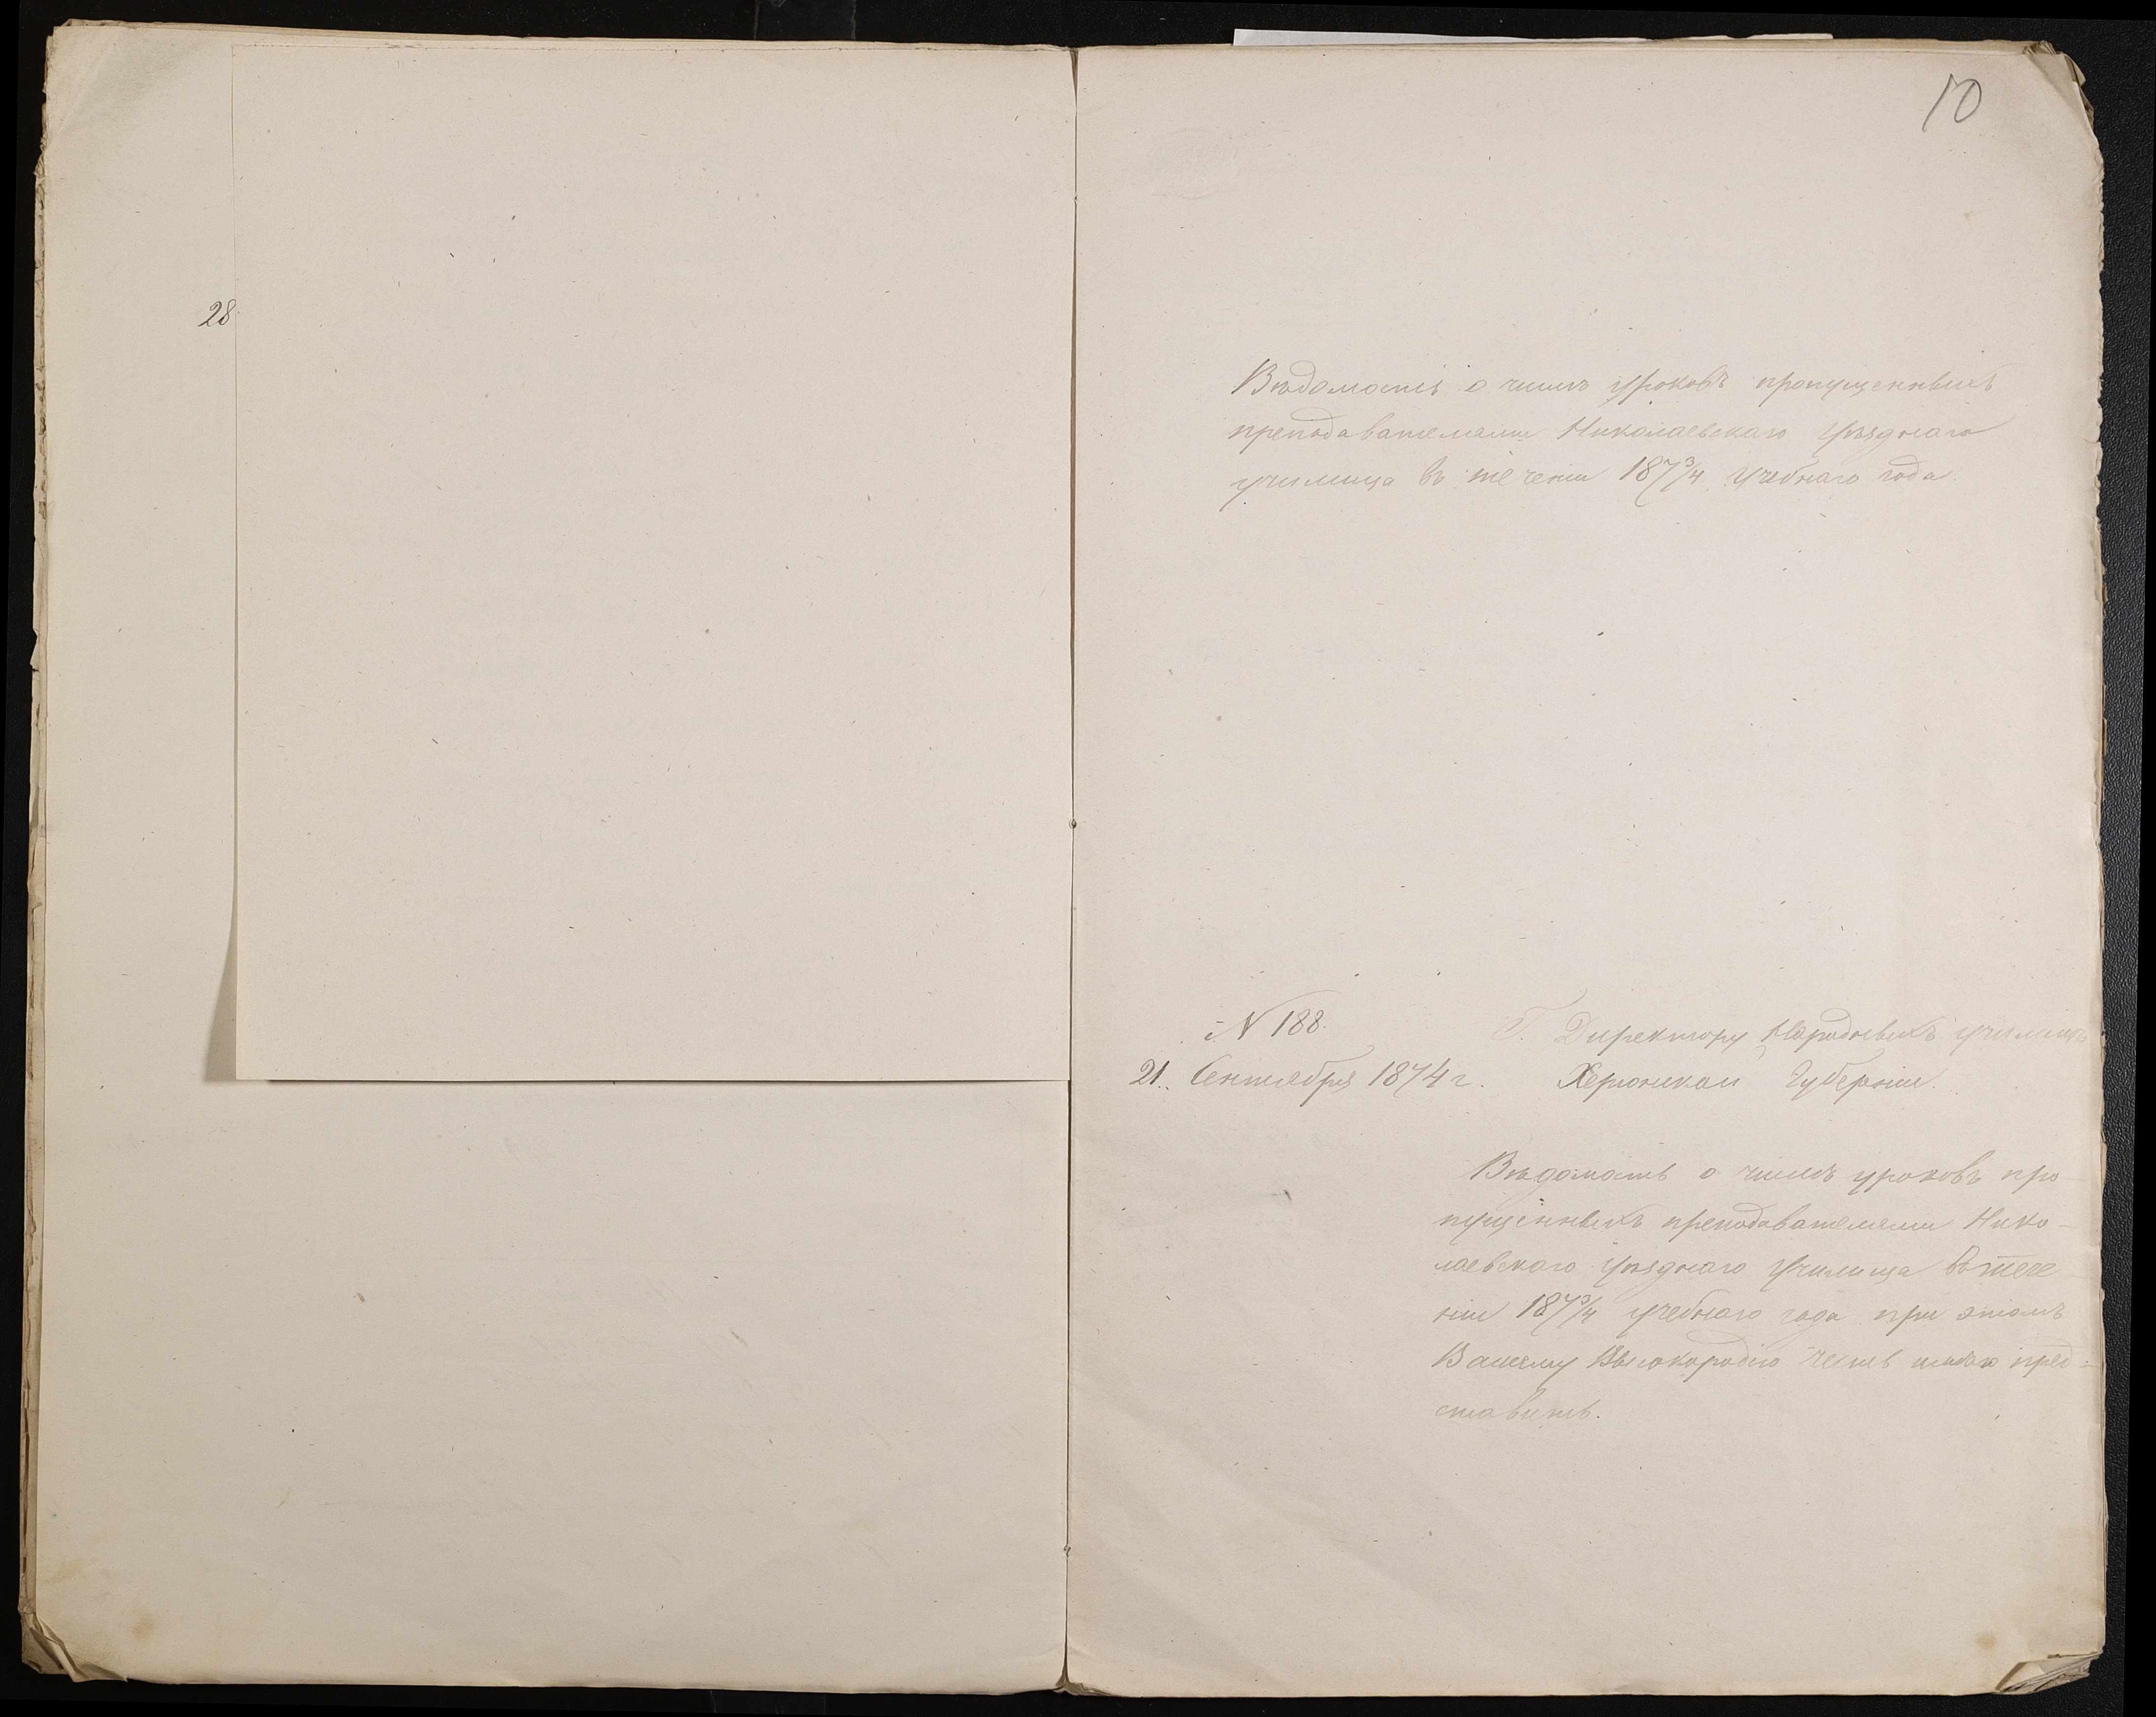 28
10
Вѣдомость о числѣ уроковъ пропущенныхъ
преподавателями Николаевскаго Уѣзднаго
училища въ теченіи 187¾ Учебнаго года
N 188.
21. Сентября 1874 г.
Г. Директору Народныхъ училищъ
Херсонской Губерніи.
Вѣдомость о числѣ уроковъ про
пущенныхъ преподавателями Нико-
лаевскаго Уѣзднаго Училища въ тече
ніи 187¾ учебнаго года при этомъ
Вашему Высокородію честь имѣю пред-
ставить.